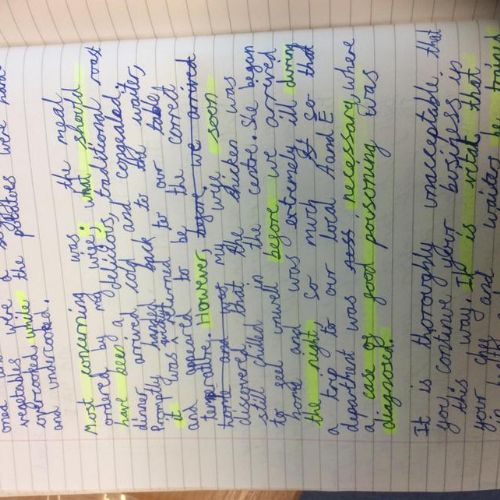 vegetables were a
overcooked while the potatoes were hard
and undercooked.
Most concerning was the meal
ordered by my wife; what should
have been a delicious, traditional roast
dinner arrived cold and congealed.
Promptly back to the waiter,
it was returned to our table,
and appeared to be the correct
temperature. However, before we arrived
home and my wife soon
discovered that the chicken was
still chilled in the centre. She began
to feel unwell before we arrived
home and was extremely ill during
the night so much so that
a trip to our local A and E
department was necessary where
a case of food poisoning was
diagnosed.
It is thoroughly unacceptable that
you continue your business in
this way. It is vital that
your and waiters trained